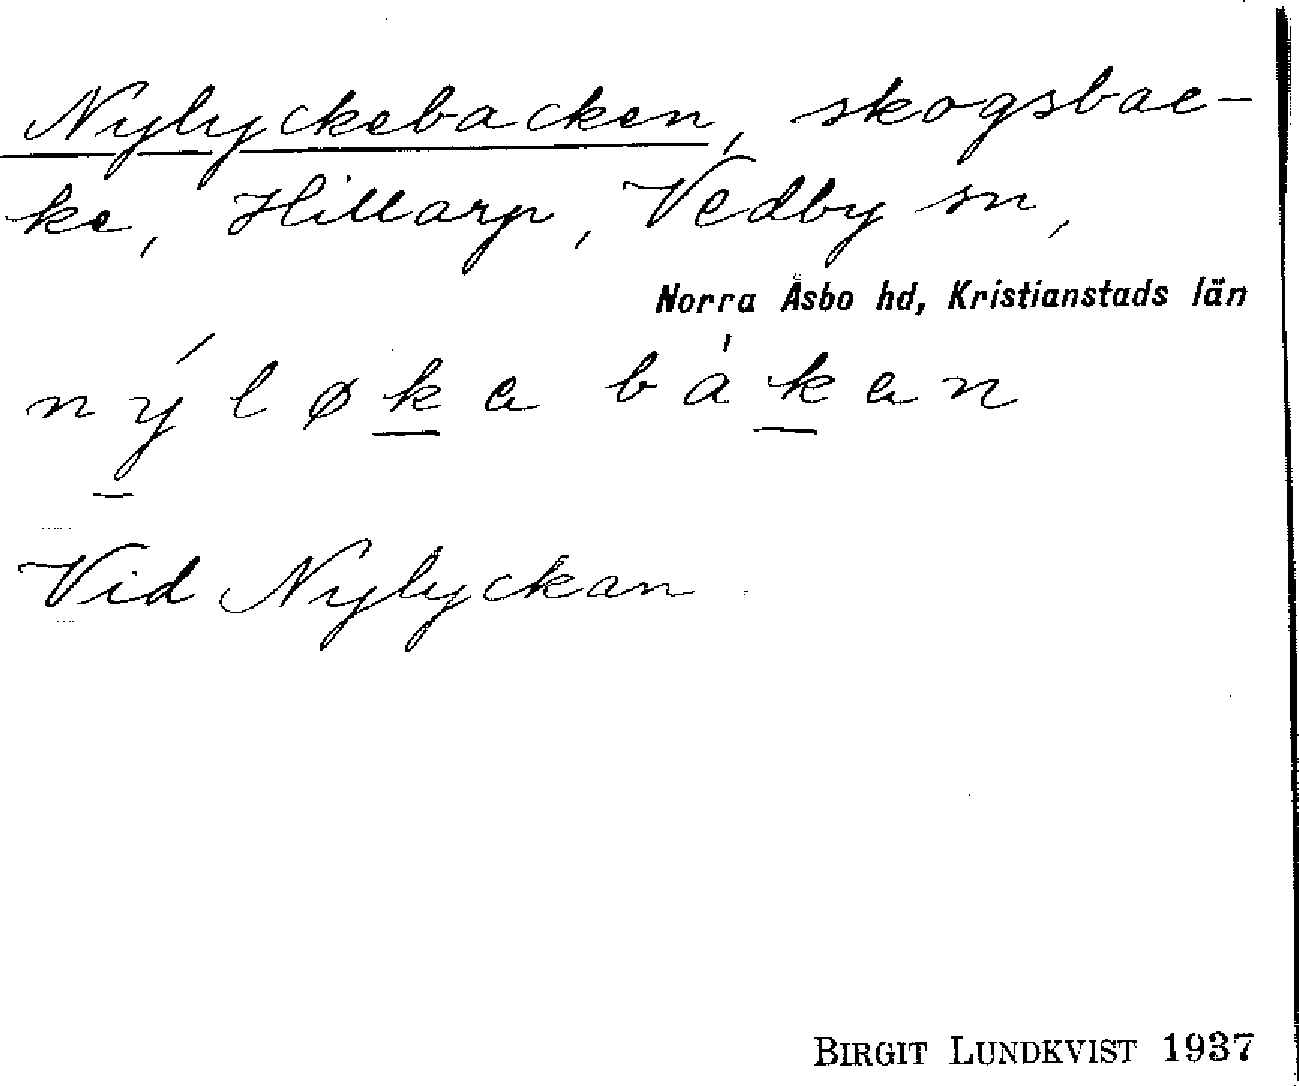 Nylyckebacken, skogsbac-
ke, Hillarp, Vedby sn,
Norra Åsbo hd, Kristianstads län
nýløka bákan
Vid Nylyckan
BIRGIT LUNDKVIST 1937